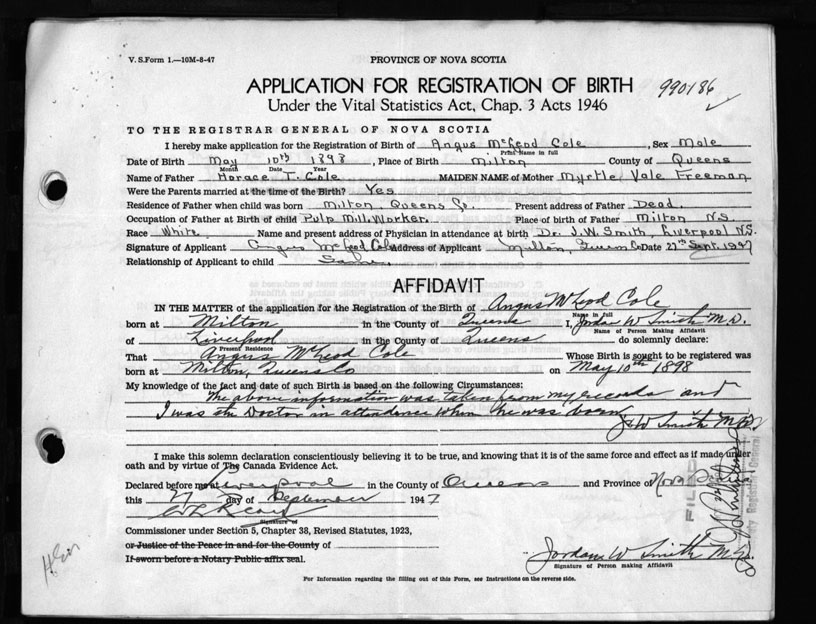 V. S. Form 1.—10M-8-47
PROVINCE OF NOVA SCOTIA
APPLICATION FOR REGISTRATION OF BIRTH
990186
Under the Vital Statistics Act, Chap. 3 Acts 1946
TO THE REGISTRAR GENERAL OF NOVA SCOTIA
I hereby make application for the Registration of Birth of Angus McLeod Cole, Sex Male
Print Name in full
Date of Birth May 10th 1898, Place of Birth Milton County of Queens
Month Date Year
Name of Father Horace T. Cole MAIDEN NAME of Mother Myrtle Vale Freeman
Were the Parents married at the time of the Birth? Yes
Residence of Father when child was born Milton, Queens Co. Present address of Father Dead.
Occupation of Father at Birth of child Pulp Mill Worker. Place of birth of Father Milton N.S.
Race White Name and present address of Physician in attendance at birth Dr. J. W. Smith, Liverpool N.S.
Signature of Applicant Angus McLeod Cole Address of Applicant Milton, Queens Co Date 27th Sept. 1947
Relationship of Applicant to child Same.
AFFIDAVIT
IN THE MATTER of the application for the Registration of Birth of Angus McLeod Cole
Name in full
born at Milton in the County of Queens I, Jordan W Smith M.D.
Name of Person Making Affidavit
of Liverpool in the County of Queens do solemnly declare:
Present Residence
That Angus McLeod Cole Whose Birth is sought to be registered was
born at Milton, Queens Co on May 10th 1898
My knowledge of the fact and date of such Birth is based on the following Circumstances:
The above information was taken from my records and
I was the Doctor in attendance when he was born J. W Smith M.D.
I make this solemn declaration conscientiously believing it to be true, and knowing that it is of the same force and effect as if made under
oath and by virtue of The Canada Evidence Act.
Declared before me at Liverpool in the County of Queens and Province of Nova Scotia
this 27 day of September 1947
Signature of
Commissioner under Section 5, Chapter 38, Revised Statutes, 1923,
or Justice of the Peace in and for the County of
If sworn before a Notary Public affix seal.
Jordan W Smith M.D.
Signature of Person making Affidavit
For Information regarding the filling out of this Form, see Instructions on the reverse side.
FILED
Deputy Registrar General